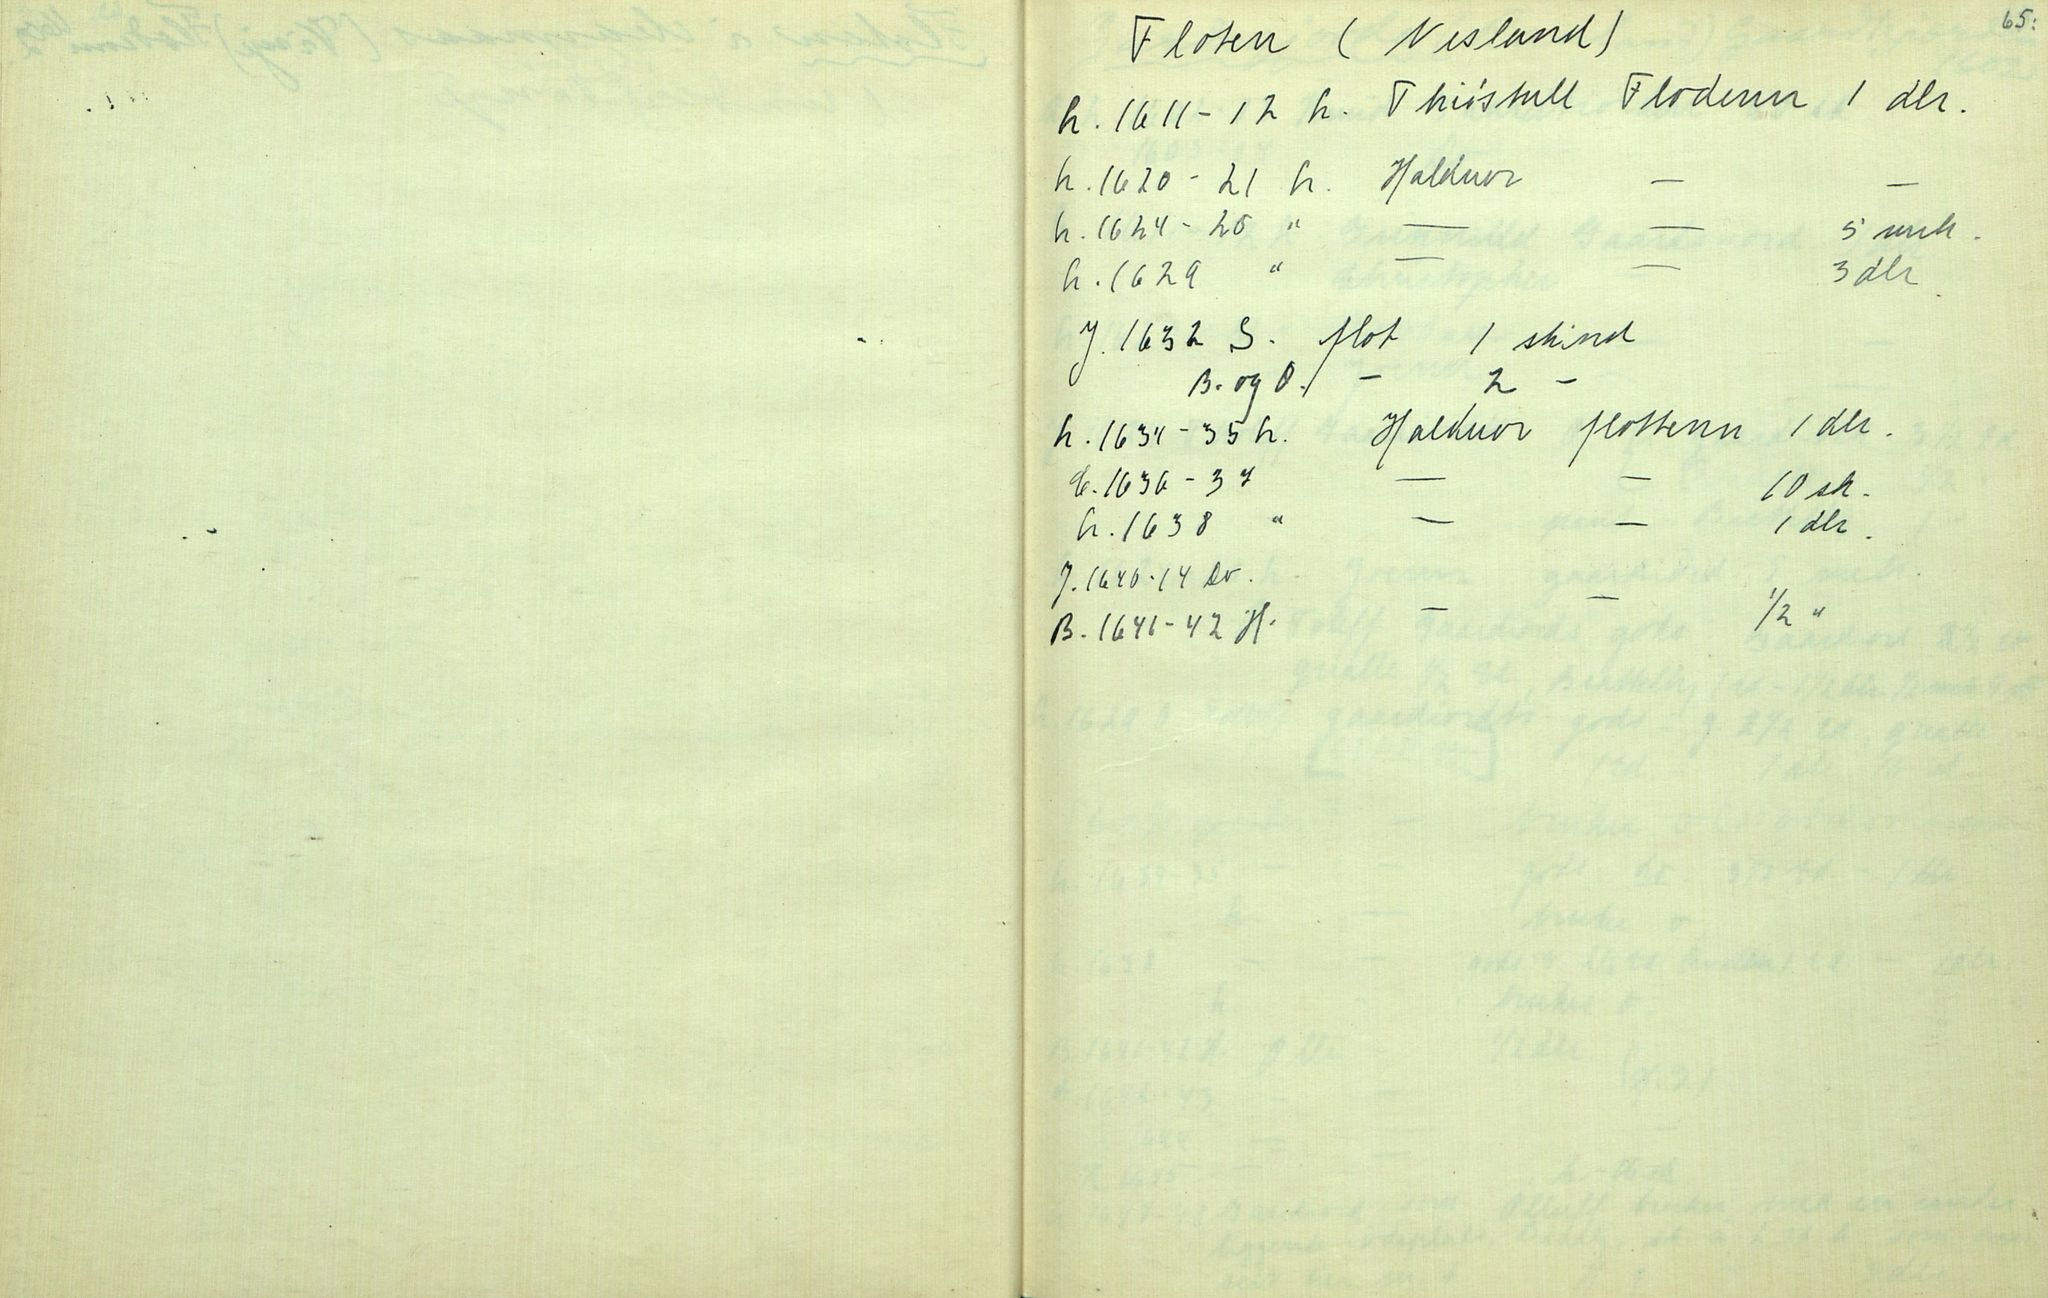 65:
Floten (Nesland)
h. 1611-12 h. Thiöstull Flodenn 1 dlr.
h. 1620-21 h. Halduor — —
h. 1624-25 " — — 5 mrk.
h. 1629 " — — 3 dlr.
J. 1632 S. flot 1 skind
B. og O. - 2 -
h. 1634-35 h. Halduor flottenn 1 dlr.
E. 1636-37 — — 10 sk.
h. 1638 " — — 1 dlr.
J. 1640.14
B. 1641-42 H. — — 1/2 "